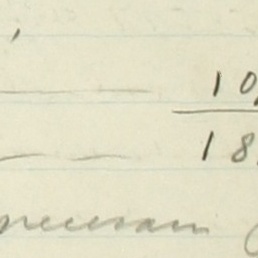 10
18
necessary